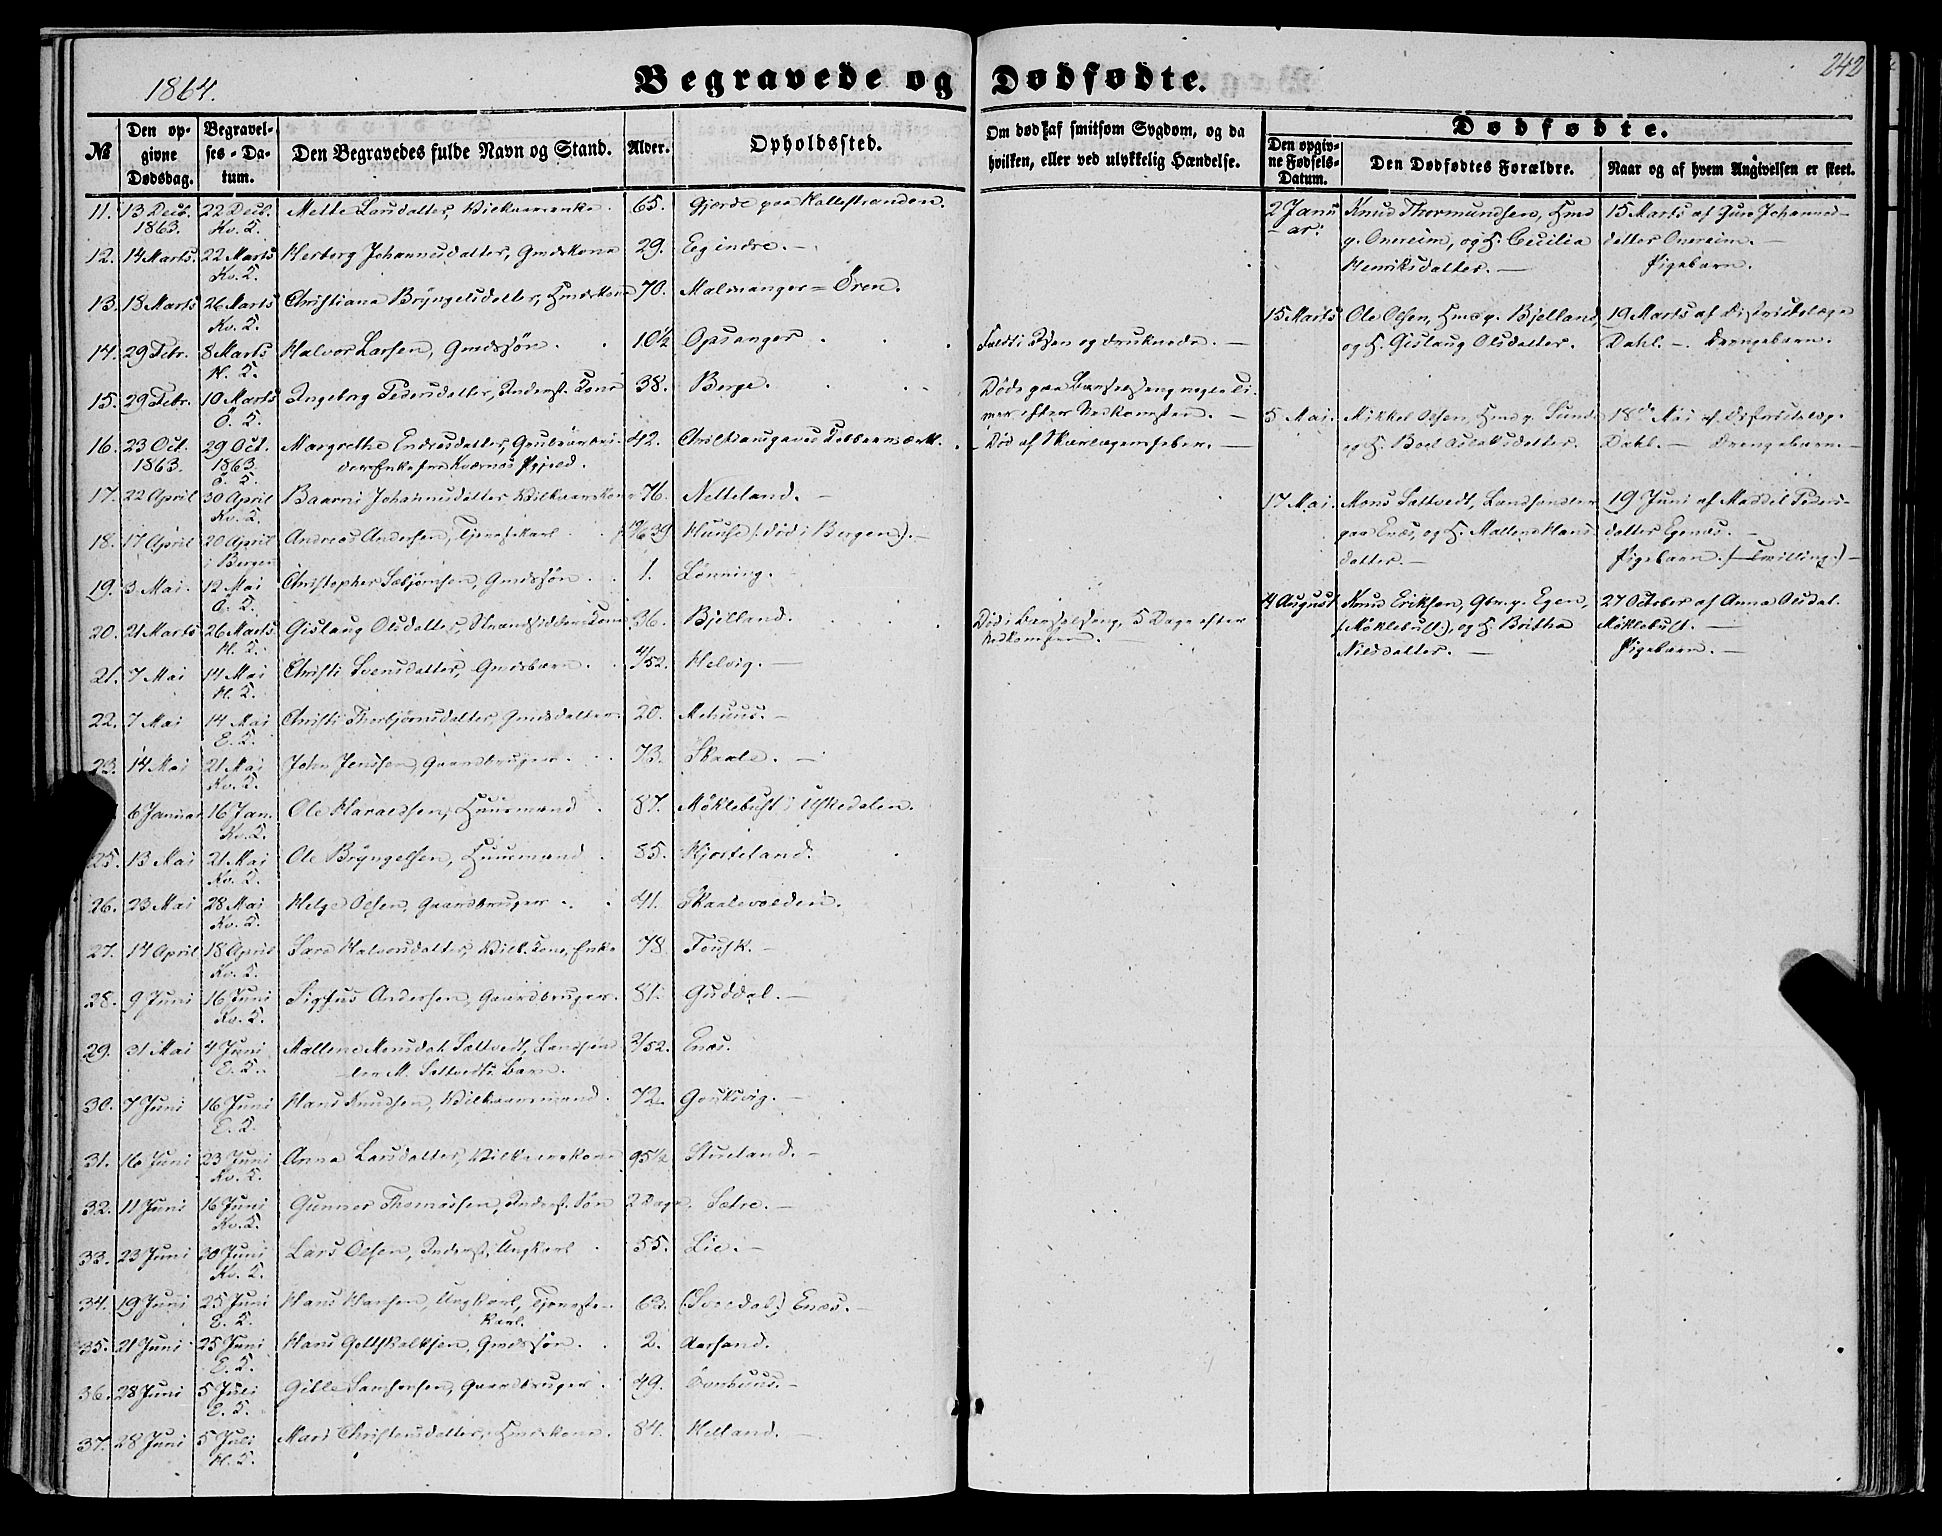 1864.
Begravede og Dødfødte.
242
№
Den opgivne Dødsdag.
Begravelses-Datum.
Den Begravedes fulde Navn og Stand.
Alder.
Opholdssted.
Om død af smitsom Sygdom, og da hvilken, eller ved ulykkelig Hændelse.
Dødfødte.
Den opgivne Fødsels-Datum.
Den Dødfødtes Forældre.
Naar og af hvem Angivelsen er skeet.
11. 13 Decb. 1863. 22 Decb. Kv. K. Mette Larsdatter, Vilkaarsenke 65. Gjerde paa Kallestranden.
12. 14 Marts. 22 Marts Kv. K. Herborg Johannesdatter, Gmdskone 29. Eeg indre.
13. 18 Marts 26 Marts Kv. K. Christiana Bryngelsdatter, Hmdskone 70. Malmanger-Ören.
14. 29 Febr. 8 Marts H. K. Halvor Larsen, Gmdssøn. 10½ Opsanger. Faldt i Søen og druknede.
15. 29 Febr. 10 Marts Ö. K. Ingeborg Pedersdatter, Inderst. Kone 38. Berge. Døde paa Barselseng nogle Timer efter Nedkomsten.
16. 23 Oct. 1863. 29 Oct. 1863. Ö. K. Margrethe Endresdatter, 42. Christiansgaves Kobberværk. Død af Skarlagensfeber.
17. 22 April 30 April Kv. K. Baarni Johannesdatter Vilkaarskone 76. Netteland.
18. 17 April 20 April i Bergen Andreas Andersen, Tjenestekarl 39 Huuse (død i Bergen).
19. 3 Mai. 12 Mai Ö. K. Christopher Sebjørnsen, Gmdssøn. 1. Lønning.
20. 21 Marts 26 Marts H. K. Gislaug Olsdatter, Strandsidders Kone 36. Bjelland. Død i Barselseng, 5 Dage efter Nedkomsten.
21. 7 Mai 14 Mai H. K. Christi Svensdatter, Gmdsbarn. 4/52. Helvig.
22. 7 Mai 14 Mai E. K. Christi Thorbjørnsdatter, Gmdsdatter 20. Mehuus.
23. 14 Mai 21 Mai Kv. K. John Jensen, Gaardbruger. 73. Skaale.
6 Januar 16 Jan. Kv. K. Ole Haraldsen, Huusmand 87. Møklebust i Uskedalen.
25. 13 Mai 21 Mai Kv. K. Ole Bryngelsen, Huusmand 85. Kjerteland.
26. 23 Mai 28 Mai Kv. K. Helge Olsen, Gaardbruger. 41. Skaalevolden.
27. 14 April 18 April Kv. K. Sara Halvorsdatter, Vilk.kone, Enke 78 Fousk.
28. 9 Juni 16 Juni Kv. K. Sigfus Andersen, Gaardbruger. 81. Guddal.
29. 31 Mai 4 Juni E. K. Mallene Monsdat. Sattvedt, Landhandler M. Sattvedts Barn. 2/52. Enæs.
30. 7 Juni 16 Juni E. K. Hans Knudsen, Vilkaarsmand. 72. Gouksvig.
31. 16 Juni 23 Juni Kv. K. Anna Larsdatter, Vilkaarskone 95½ Stueland.
32. 11 Juni 16 Juni Kv. K. Gunner Thomassen, Inderst. Søn 2 Dage. Sætre.
33. 23 Juni 30 Juni Kv. K. Lars Olsen, Inderst, Ungkarl 55. Lie.
34. 19 Juni 25 Juni E. K. Hans Hansen, Ungkarl, Tjenestekarl. 63. (Svredal) Enæs.
35. 21 Juni 25 Juni E. K. Hans Gottskalksen, Gmdssøn. 2. Aarsand.
36. 28 Juni 5 Juli E. K. Gitle Samsonsen, Gaardbruger. 49. Ovrehuus.
37. 28 Juni 5 Juli H. K. Mari Christensdatter, Hmdskone. 84. Helland.
2 Januar: Knud Thormundsen, Hmd p. Onereim, og H. Cecilia Henriksdatter. 15 Marts af Guro Johannesdatter Onereim. Pigebarn.
15 Marts Ole Olsen, Hmd p. Bjelland, og H. Gislaug Olsdatter. 19 Marts af Distriktslæge Dahl. Drengebarn.
5 Mai. Mikkel Olsen, Hmd p. Sunde og H. Boel Aslaksdatter. 18de Mai af Districtslæge Dahl. Drengebarn.
17 Mai. Mons Sattvedt, Landhandler paa Enæs, og H. Mallene Hansdatter. 19 Juni af Maddel Pedersdatter Egenæs. Pigebarn. (Tvilling.)
4 August Knud Eriksen, Gbr. p. Egen, (Møklebust), og H. Britha Nilsdatter. 27 October af Anna Olsdat. Møklebust. Pigebarn.